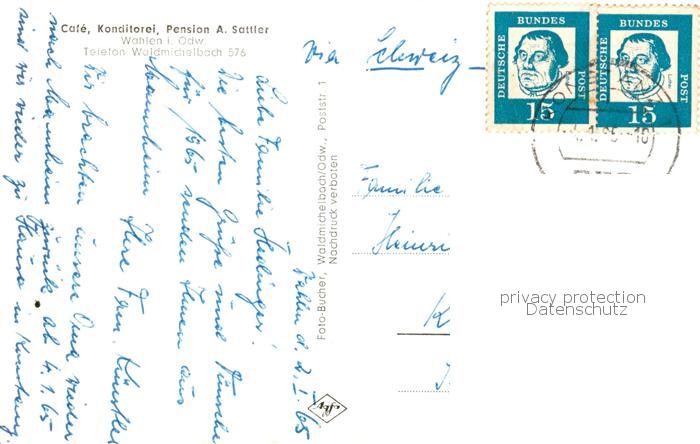 Café, Konditorei, Pension A. Sattler
Wahlen i. Odw.
Telefon Waldmichelbach 576
Via Schweiz
DEUTSCHE BUNDES POST
15
DEUTSCHE BUNDES POST
15
Familie
Heinri
K
Foto-Bucher, Waldmichelbach/Odw., Poststr. 1
Nachdruck verboten
Wahlen d. 2. I. 65
Liebe Familie
Die besten Grüße und Wünsche
für 1965 senden Ihnen aus
Mannheim Ihre Fam. Künstle
Wir brachten unsere Oma wieder
nach Mannheim zurück. ab 4.1.65
sind wir wieder zu Hause in Konstanz.
privacy protection
Datenschutz